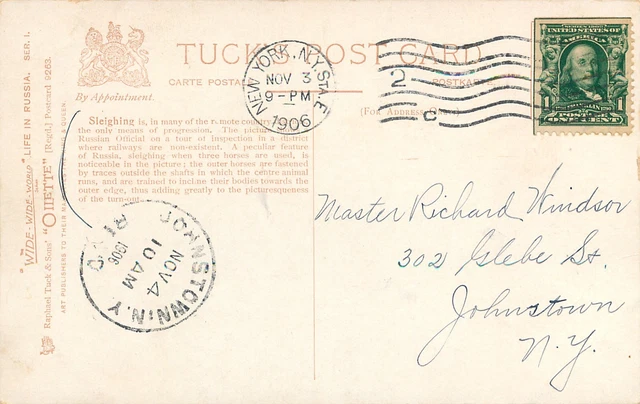 TUCK'S POST CARD
CARTE POSTALE
By Appointment.
(For Address Only)
"WIDE-WIDE-WORLD" LIFE IN RUSSIA. SER. I.
Raphael Tuck & Sons' "OILETTE" [Regd.] Postcard 9263.
ART PUBLISHERS TO THEIR MAJESTIES THE KING & QUEEN.
Sleighing is, in many of the remote
the only means of progression. The
Russian Official on a tour of inspection in a district
where railways are non-existent. A peculiar feature
of Russia, sleighing when three horses are used, is
noticeable in the picture; the outer horses are fastened
by traces outside the shafts in which the centre animal
runs, and are trained to incline their bodies towards the
outer edge, thus adding greatly to the picturesqueness
of the turn-out.
NEW YORK, N.Y. STA. E
NOV 3
9-PM
1906
2
UNITED STATES OF
1 1
JOHNSTOWN, N.Y.
NOV 4
10 AM
1906
REC'D
Master Richard Windsor
302 Glebe St.
Johnstown
N.Y.